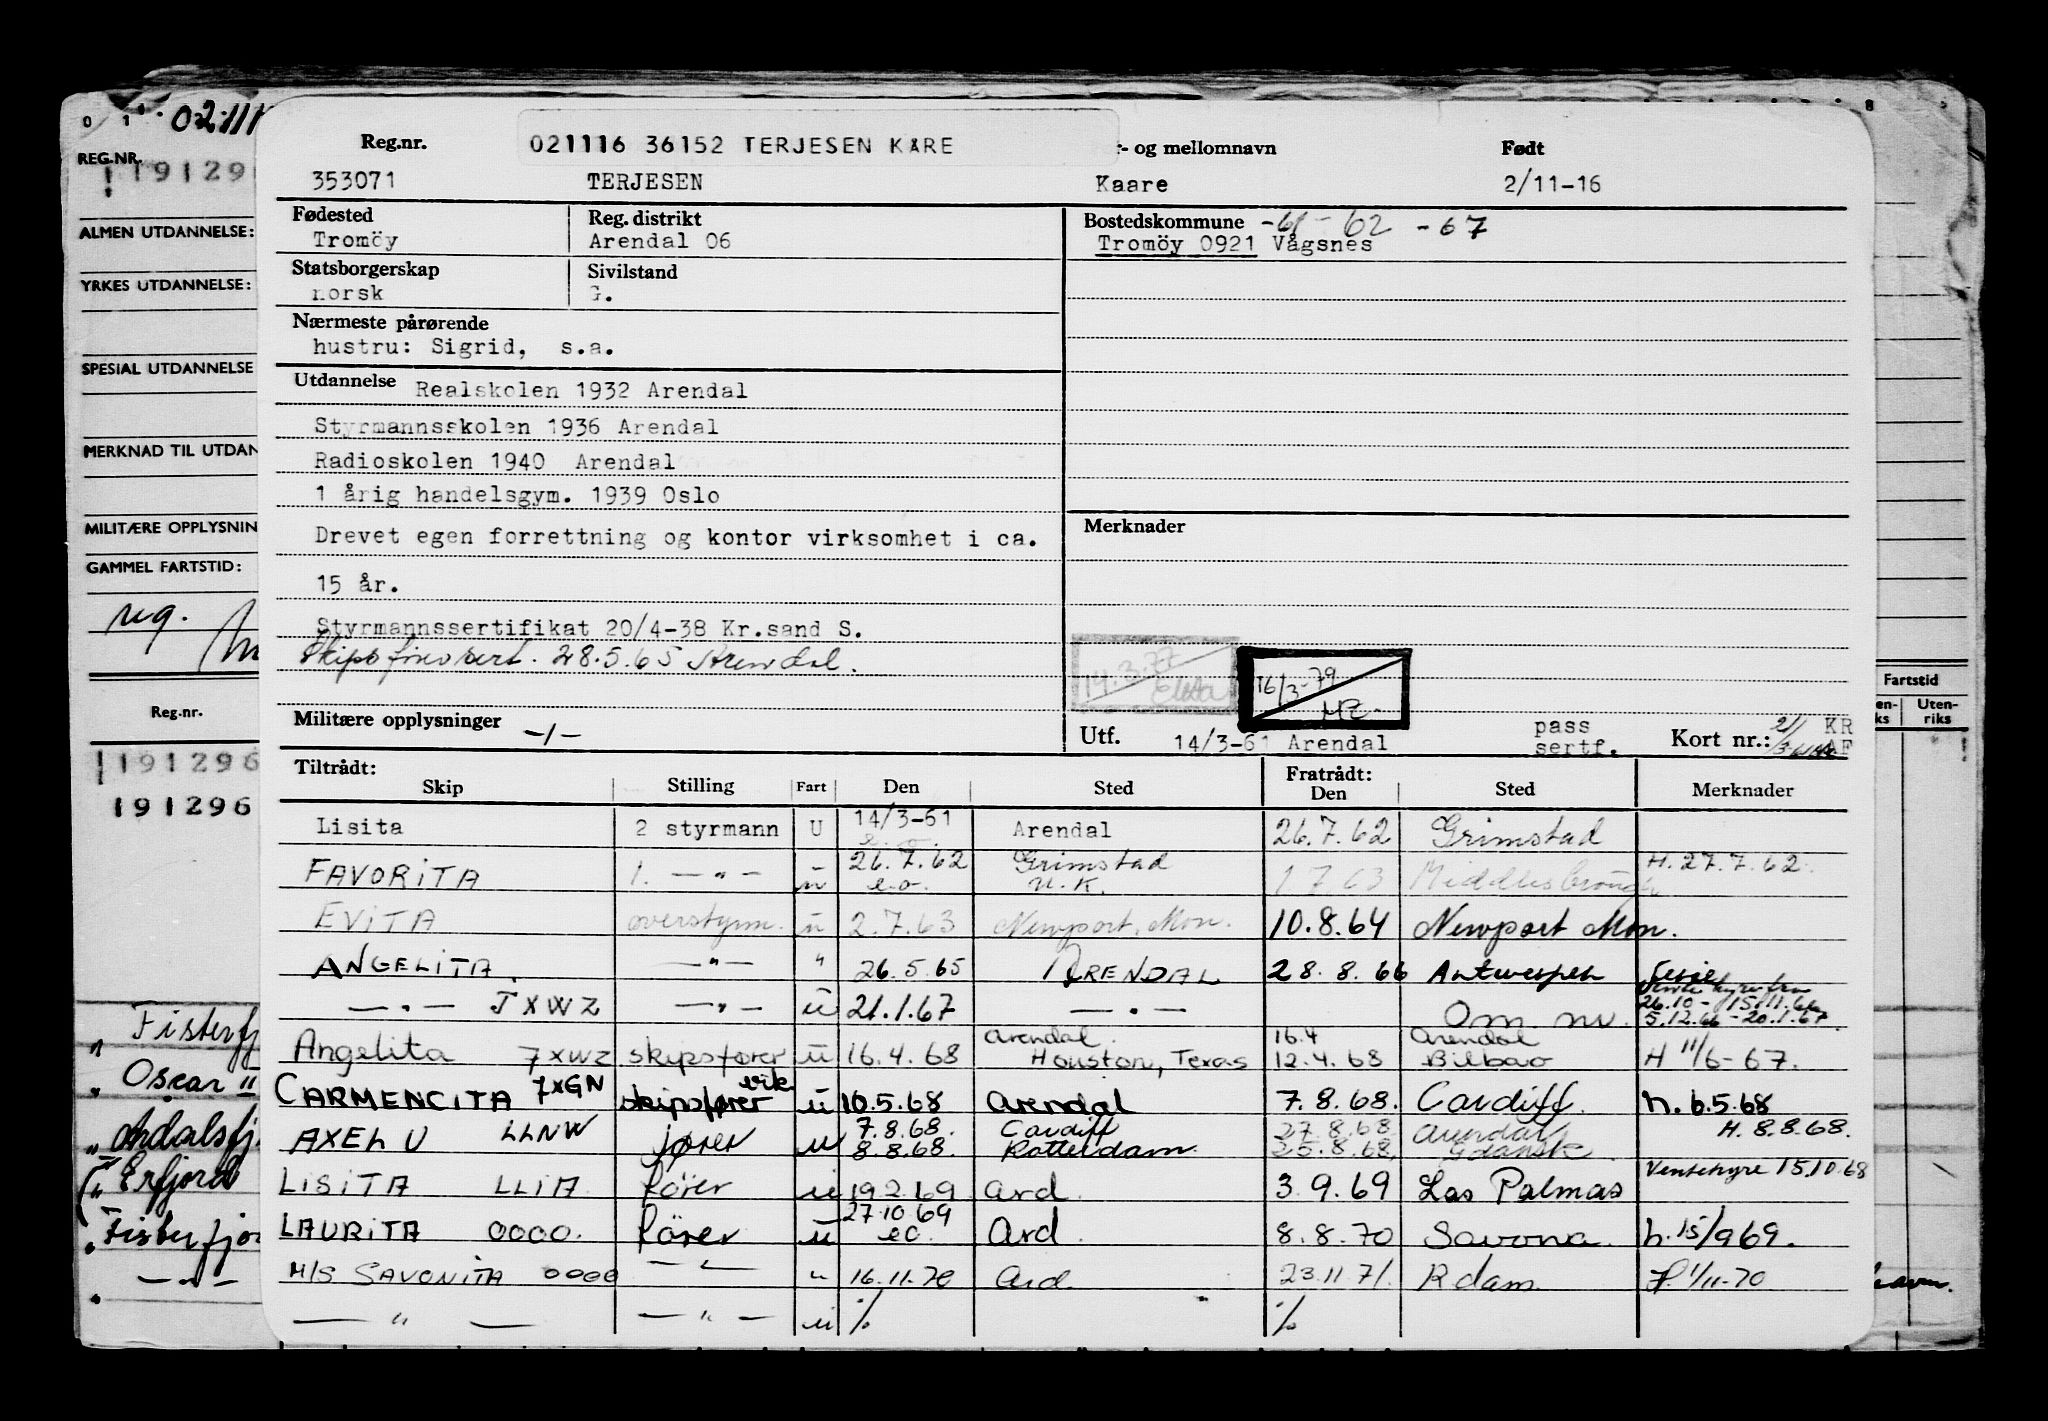 021116 36152 TERJESEN KÅRE
Reg.nr. - og mellomnavn Født
353071 TERJESEN Kaare 2/11-16
Fødested Reg. distrikt Bostedskommune -61-62 -67
Tromöy Arendal 06 Tromöy 0921 Vågsnes
Statsborgerskap Sivilstand
norsk G.
Nærmeste pårørende
hustru: Sigrid, s.a.
Utdannelse Realskolen 1932 Arendal
Styrmannsskolen 1936 Arendal
Radioskolen 1940 Arendal
1 årig handelsgym. 1939 Oslo
Drevet egen forrettning og kontor virksomhet i ca.
15 år.
Styrmannssertifikat 20/4-38 Kr.sand S.
28.5.65 Arendal.
Merknader
14.3.77
16/3-79
Militære opplysninger -/-
Utf. 14/3-61 Arendal pass sertf. Kort nr.: KR AF
Tiltrådt: Fratrådt:
Skip Stilling Fart Den Sted Den Sted Merknader
Lisita 2 styrmann U 14/3-61 Arendal 26.7.62 Grimstad
FAVORITA 1. -"- u 26.7.62 e.o. Grimstad n.k. 1 7 63 Middlesbrough H. 27.7.62.
EVITA overstyrm. u 2.7.63 Newport, Mon. 10.8.64 Newport Mon.
ANGELITA. -"- " 26.5.65 ARENDAL 28.8.66 Antwerpen Ferie
-"- JXWZ -"- u 21.1.67 -"- Om. nv. 26.10 - 15.11.66 5.12.66 - 20.1.67
Angelita JXWZ skipsfører u 16.4.68 Arendal. Houston, Texas 16.4 12.4.68 Arendal Bilbao H 11/6-67.
CARMENCITA JXGN skipsfører vik. u 10.5.68 Arendal 7.8.68. Cardiff. h. 6.5.68
AXEL U LLNW fører u 7.8.68. 8.8.68. Cardiff Rotterdam 27.8.68 25.8.68, Arendal Gdansk. H. 8.8.68.
LISITA LLIA fører u 19.2.69 Ard. 3.9.69 Las Palmas Ventehyre 15.10.68
LAURITA OOOO. fører u 27.10.69 eo. Ard. 8.8.70 Savona. h. 15/9 69.
M/S SAVONITA OOOO -"- " 16.11.70 Ard. 23.11.71. Rdam. H. 1/11-70
-"- -"- u % %
0 1 02.11.1 8
REG.NR.
191296
ALMEN UTDANNELSE:
YRKES UTDANNELSE:
SPESIAL UTDANNELSE
MERKNAD TIL UTDAN
MILITÆRE OPPLYSNIN
GAMMEL FARTSTID:
reg.
Reg.nr. Fartstid
en-ks Uten-riks
191296
191296
" Fisterfj
" Oscar II
" Årdalsfj.
" Erfjord
" Fisterfjo
-"-
havn.